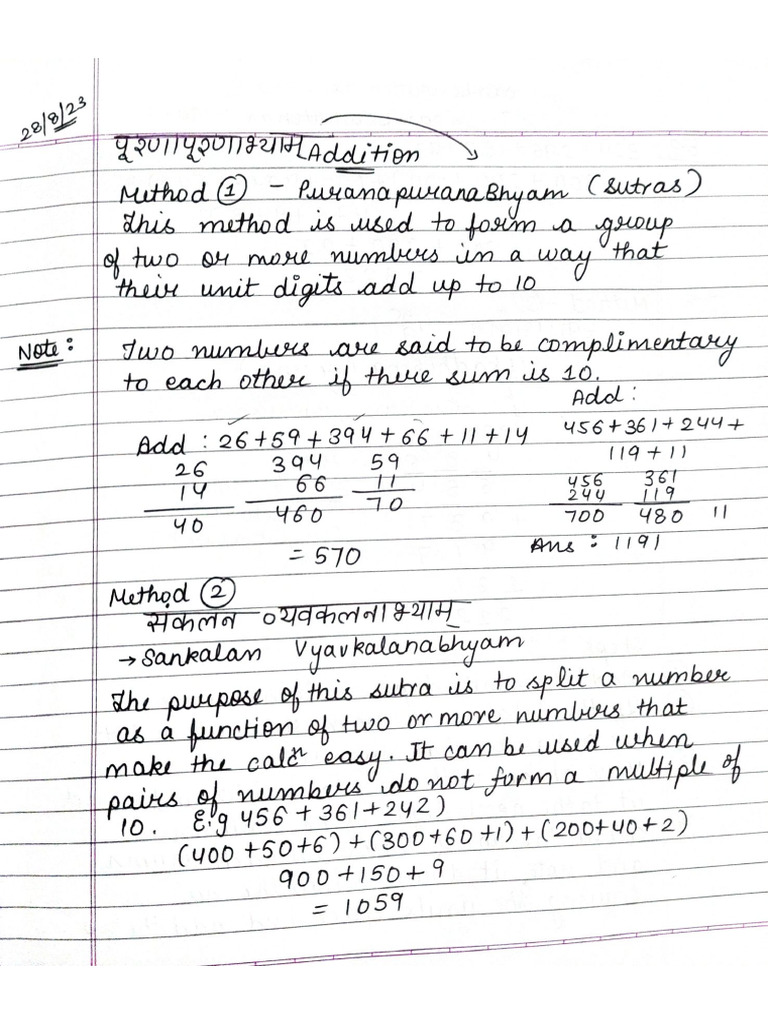 28/8/23
पूरणापूरणाभ्याम् Addition
Method ① - PuranapuranaBhyam (Sutras)
This method is used to form a group
of two or more numbers in a way that
their unit digits add up to 10
Note: Two numbers are said to be complimentary
to each other if there sum is 10.
Add : 26+59+394+66+11+14
26 394 59
14 66 11
40 460 70
= 570
Add :
456+361+244+
119+11
456 361
244 119
700 480 11
Ans : 1191
Method ②
सकंलन व्यवकलनाभ्याम्
→ Sankalan Vyavkalanabhyam
The purpose of this sutra is to split a number
as a function of two or more numbers that
make the calcn easy. It can be used when
pairs of numbers do not form a multiple of
10. E.g 456+361+242)
(400+50+6)+(300+60+1)+(200+40+2)
900+150+9
= 1059